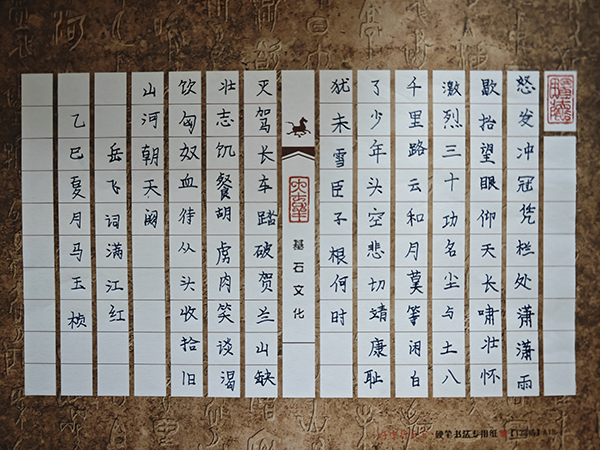 怒发冲冠凭栏处潇潇雨
歇抬望眼仰天长啸壮怀
激烈三十功名尘与土八
千里路云和月莫等闲白
了少年头空悲切靖康耻
犹未雪臣子根何时
基石文化
灭驾长车踏破贺兰山缺
壮志饥餐胡虏肉笑谈渴
饮匈奴血待从头收拾旧
山河朝天阙
岳飞词满江红
乙巳夏月马玉桢
硬笔书法专用纸